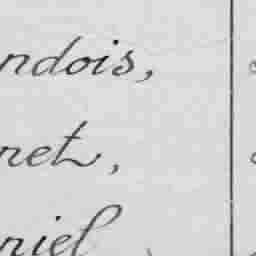 ndois,
net,
niel,